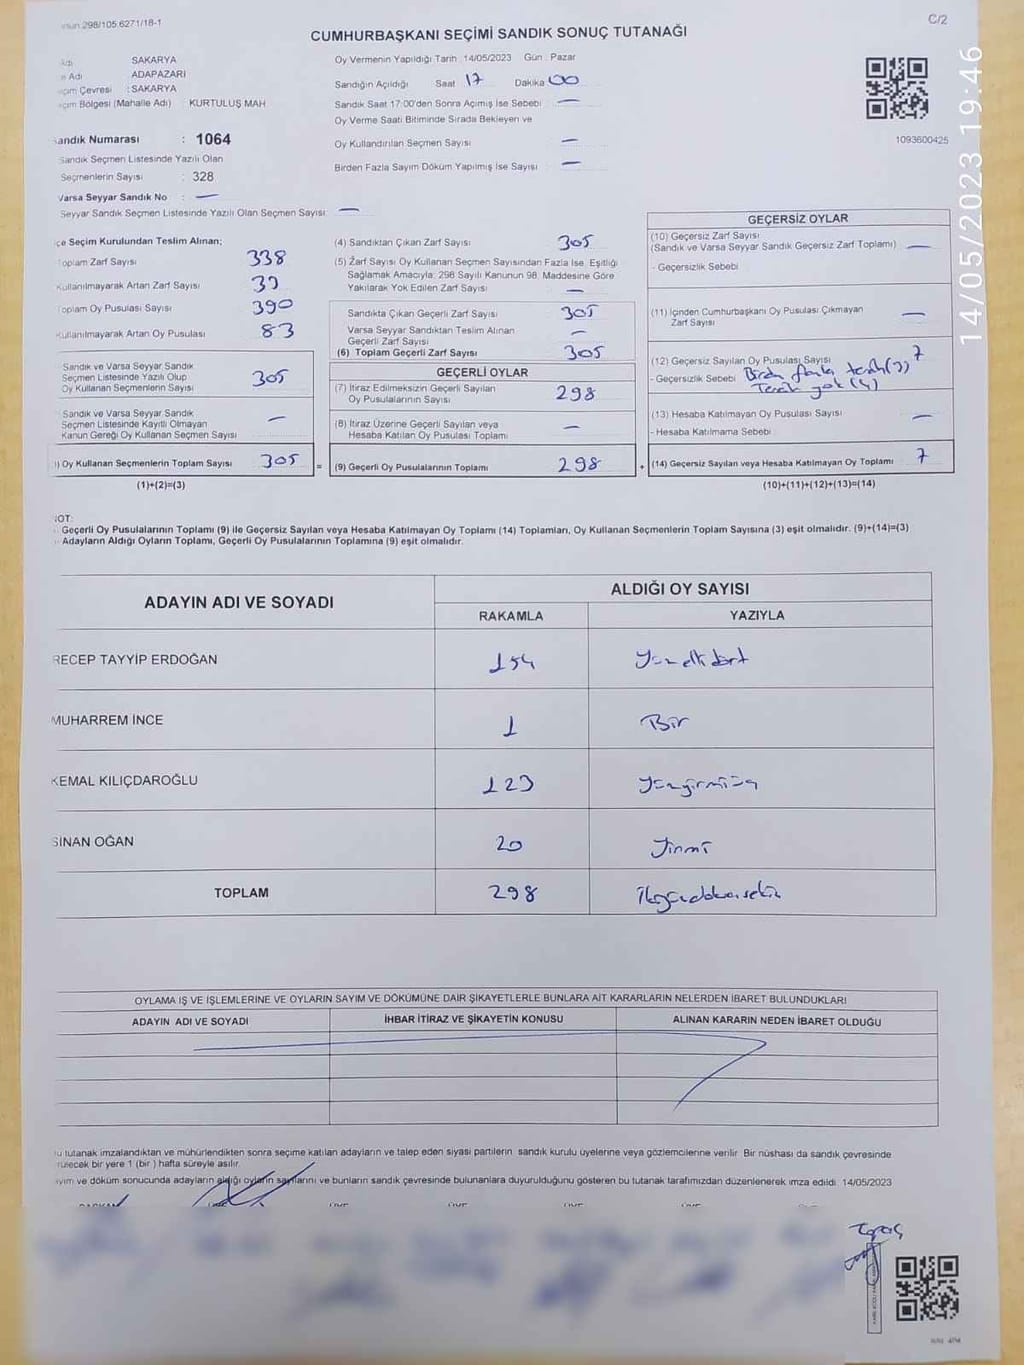 298/105.6271/18-1
C/2
CUMHURBAŞKANI SEÇİMİ SANDIK SONUÇ TUTANAĞI
SAKARYA
Adı ADAPAZARI
: SAKARYA
Bölgesi (Mahalle Adı) : KURTULUŞ MAH
Sandık Numarası : 1064
Sandık Seçmen Listesinde Yazılı Olan
Seçmenlerin Sayısı : 328
Varsa Seyyar Sandık No : —
Seyyar Sandık Seçmen Listesinde Yazılı Olan Seçmen Sayısı: —
Oy Vermenin Yapıldığı Tarih : 14/05/2023 Gün : Pazar
Sandığın Açıldığı Saat : 17 Dakika : 00
Sandık Saat 17:00'den Sonra Açımış İse Sebebi : —
Oy Verme Saati Bitiminde Sırada Bekleyen ve
Oy Kullandırılan Seçmen Sayısı : —
Birden Fazla Sayım Döküm Yapılmış İse Sayısı : —
1093600425
14/05/2023 19:46
Seçim Kurulundan Teslim Alınan;
Toplam Zarf Sayısı 338
Kullanılmayarak Artan Zarf Sayısı : 33
Toplam Oy Pusulası Sayısı 390
Kullanılmayarak Artan Oy Pusulası 83
Sandık ve Varsa Seyyar Sandık
Seçmen Listesinde Yazılı Olup
Oy Kullanan Seçmenlerin Sayısı 305
Sandık ve Varsa Seyyar Sandık
Seçmen Listesinde Kayıtlı Olmayan
Kanun Gereği Oy Kullanan Seçmen Sayısı —
Oy Kullanan Seçmenlerin Toplam Sayısı 305
(1)+(2)=(3)
=
(4) Sandıktan Çıkan Zarf Sayısı : 305
(5) Zarf Sayısı Oy Kullanan Seçmen Sayısından Fazla İse, Eşitliği
Sağlamak Amacıyla; 298 Sayılı Kanunun 98. Maddesine Göre
Yakılarak Yok Edilen Zarf Sayısı : —
Sandıkta Çıkan Geçerli Zarf Sayısı : 305
Varsa Seyyar Sandıktan Teslim Alınan
Geçerli Zarf Sayısı : —
(6) Toplam Geçerli Zarf Sayısı : 305
GEÇERLİ OYLAR
(7) İtiraz Edilmeksizin Geçerli Sayılan
Oy Pusulalarının Sayısı : 298
(8) İtiraz Üzerine Geçerli Sayılan veya
Hesaba Katılan Oy Pusulası Toplamı : —
(9) Geçerli Oy Pusulalarının Toplamı : 298
+
GEÇERSİZ OYLAR
(10) Geçersiz Zarf Sayısı
(Sandık ve Varsa Seyyar Sandık Geçersiz Zarf Toplamı) : —
- Geçersizlik Sebebi
(11) İçinden Cumhurbaşkanı Oy Pusulası Çıkmayan
Zarf Sayısı : —
(12) Geçersiz Sayılan Oy Pusulası Sayısı : 7
- Geçersizlik Sebebi : Birden fazla tercih (3)
Tercih yok (4)
(13) Hesaba Katılmayan Oy Pusulası Sayısı : —
- Hesaba Katılmama Sebebi :
(14) Geçersiz Sayılan veya Hesaba Katılmayan Oy Toplamı : 7
(10)+(11)+(12)+(13)=(14)
NOT:
Geçerli Oy Pusulalarının Toplamı (9) ile Geçersiz Sayılan veya Hesaba Katılmayan Oy Toplamı (14) Toplamları, Oy Kullanan Seçmenlerin Toplam Sayısına (3) eşit olmalıdır. (9)+(14)=(3)
Adayların Aldığı Oyların Toplamı, Geçerli Oy Pusulalarının Toplamına (9) eşit olmalıdır.
ADAYIN ADI VE SOYADI
ALDIĞI OY SAYISI
RAKAMLA YAZIYLA
RECEP TAYYİP ERDOĞAN 154 Yüzellidört
MUHARREM İNCE 1 Bir
KEMAL KILIÇDAROĞLU 123 Yüzyirmiüç
SİNAN OĞAN 20 Yirmi
TOPLAM 298 İkiyüzdoksansekiz
OYLAMA İŞ VE İŞLEMLERİNE VE OYLARIN SAYIM VE DÖKÜMÜNE DAİR ŞİKAYETLERLE BUNLARA AİT KARARLARIN NELERDEN İBARET BULUNDUKLARI
ADAYIN ADI VE SOYADI İHBAR İTİRAZ VE ŞİKAYETİN KONUSU ALINAN KARARIN NEDEN İBARET OLDUĞU
tutanak imzalandıktan ve mühürlendikten sonra seçime katılan adayların ve talep eden siyasi partilerin sandık kurulu üyelerine veya gözlemcilerine verilir. Bir nüshası da sandık çevresinde
bir yere 1 (bir) hafta süreyle asılır.
ve döküm sonucunda adayların aldığı oyların sayılarını ve bunların sandık çevresinde bulunanlara duyurulduğunu gösteren bu tutanak tarafımızdan düzenlenerek imza edildi. 14/05/2023